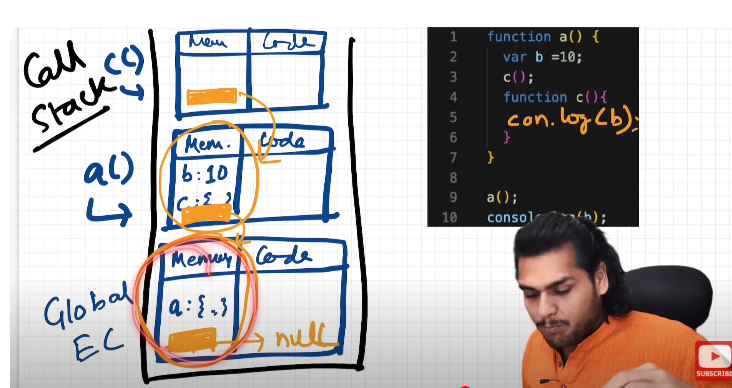 Call
Stack
c()
Mem
Code
a()
Mem.
Code
b:10
Global
EC
Memory
Code
a:{..}
null
1 function a() {
2 var b =10;
3 c();
4 function c(){
5 con.log(b);
6 }
7 }
8
9 a();
10 consol (b);
SUBSCRIBE